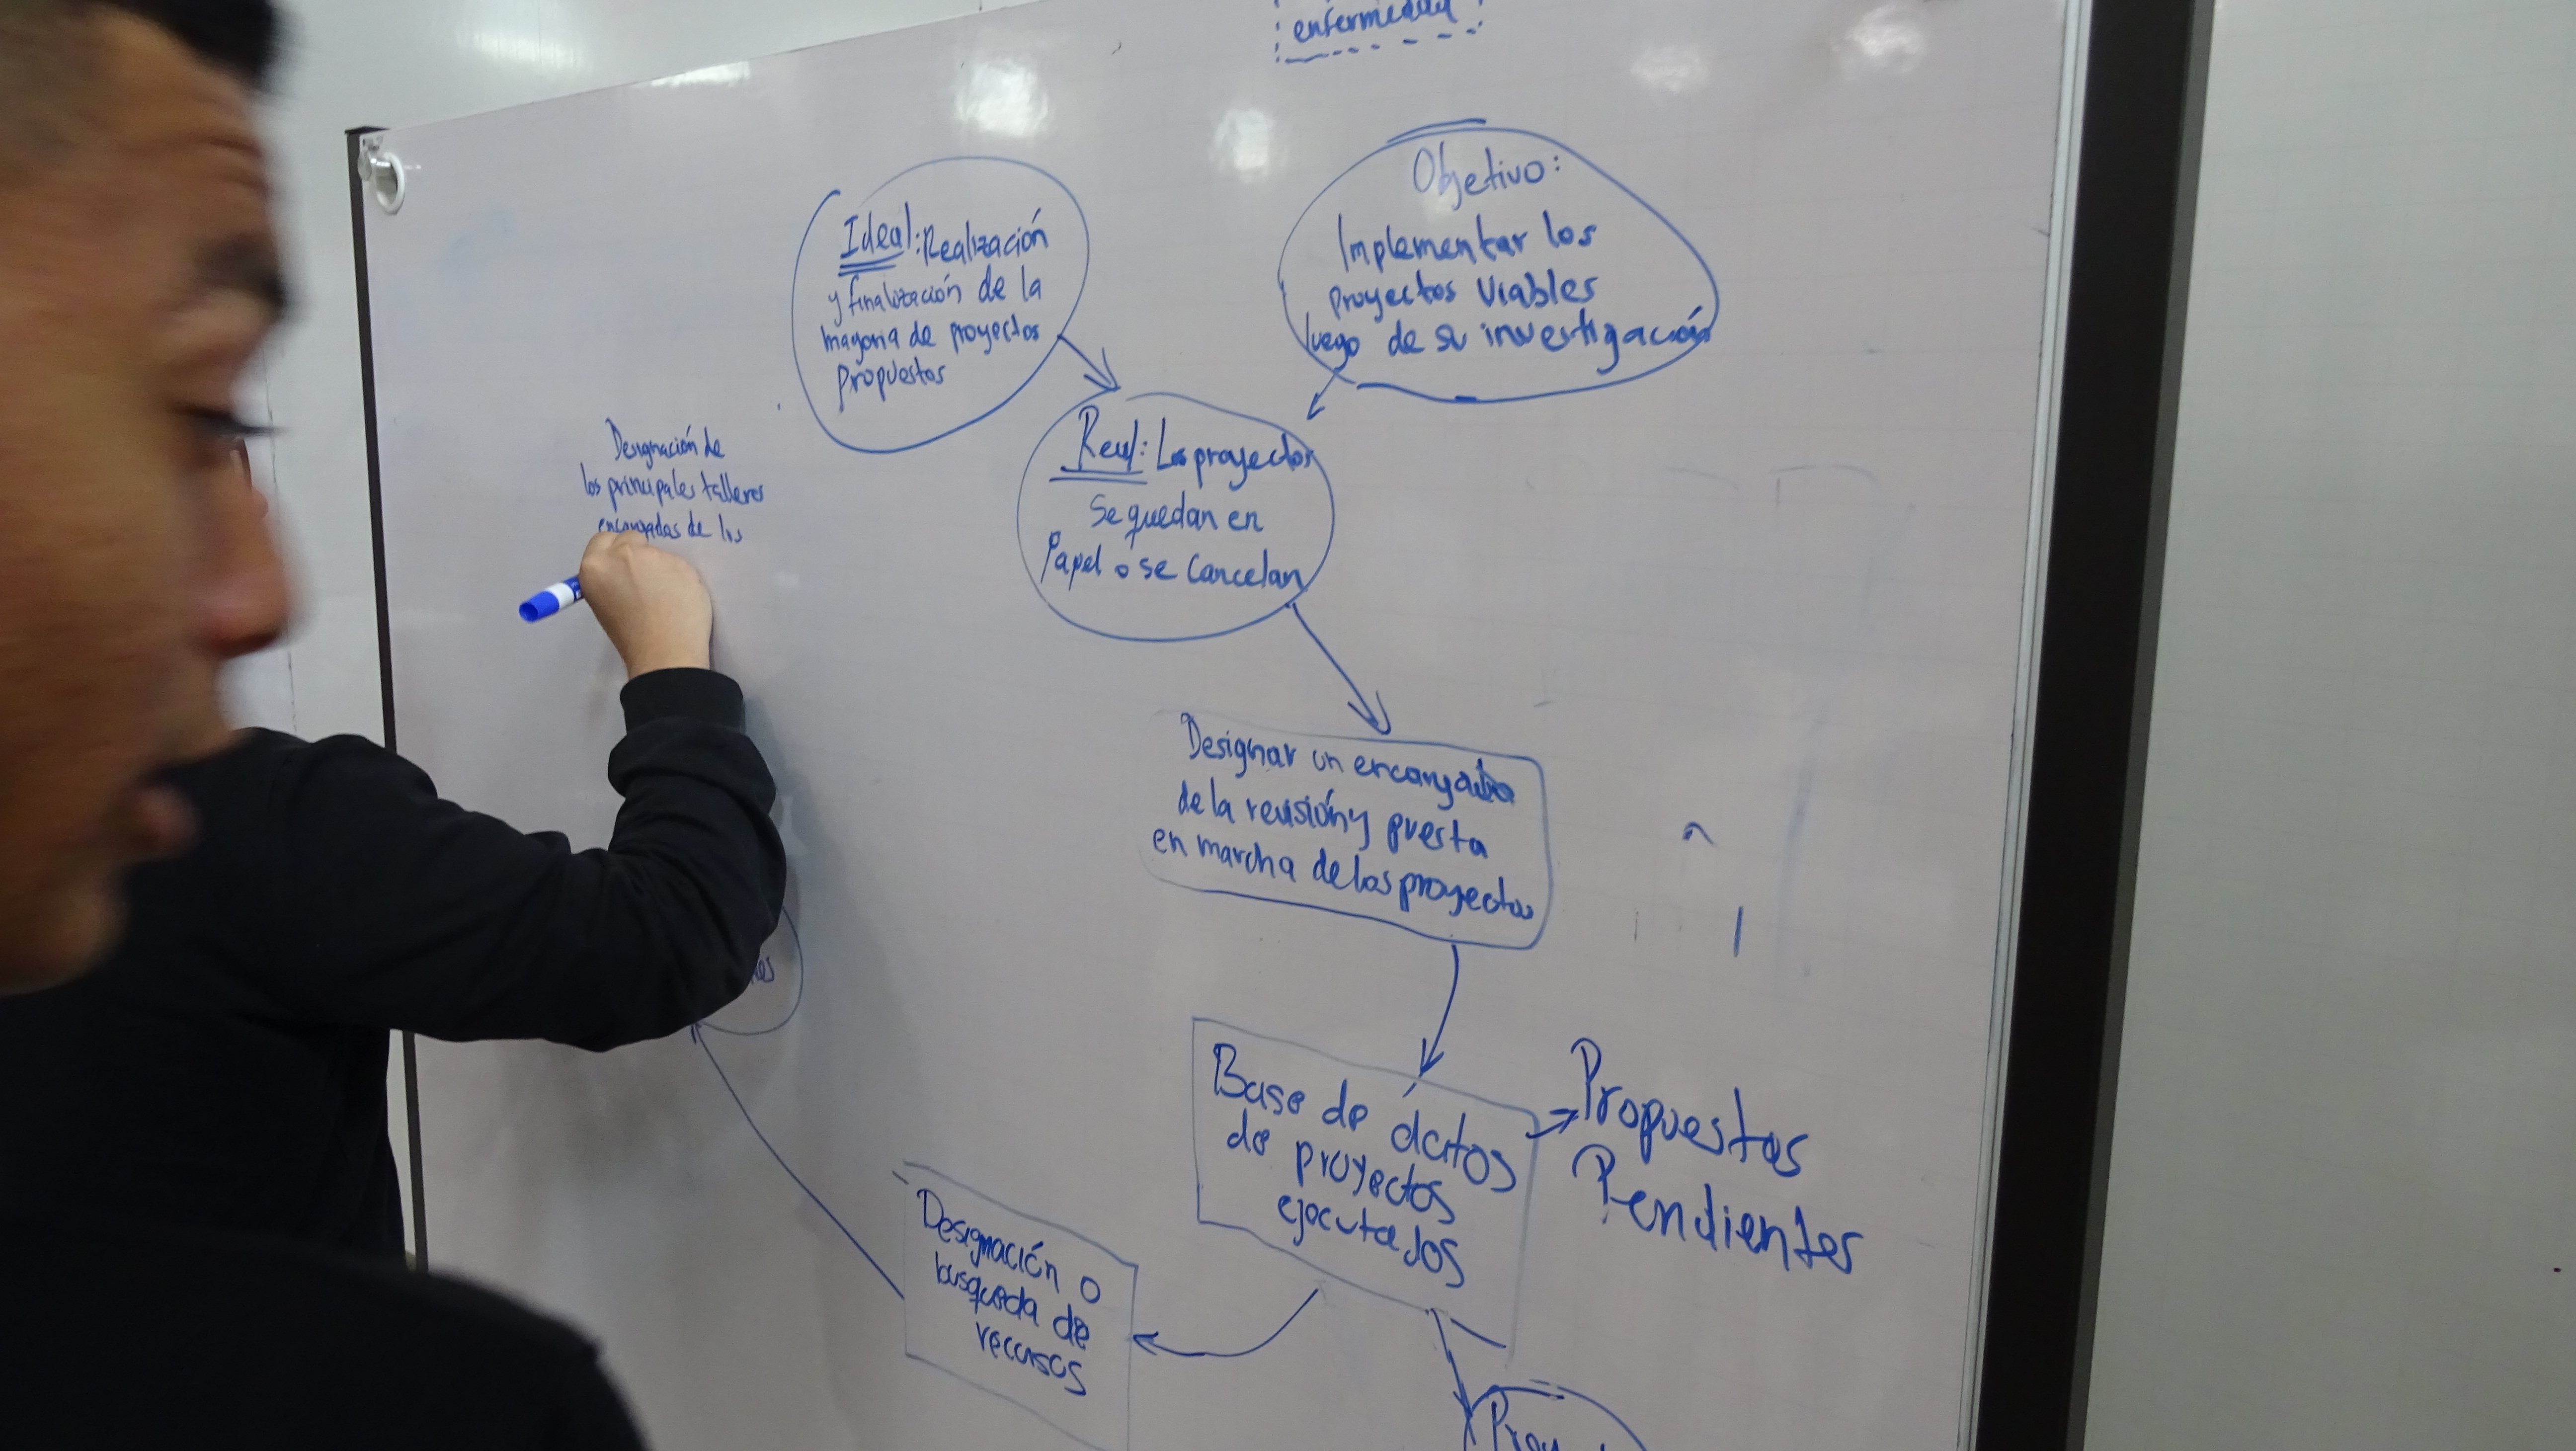 enfermedad
Ideal: Realización
y finalización de la
mayoria de proyectos
propuestos
Objetivo:
Implementar los
proyectos viables
luego de su investigación
Designación de
los principales talleres
encargados de los
Real: Los proyectos
se quedan en
Papel o se cancelan
Designar un encargado
de la revisión y puesta
en marcha de los proyectos
Base de datos
de proyectos
ejecutados
Propuestas
Pendientes
Designación o
busqueda de
recursos